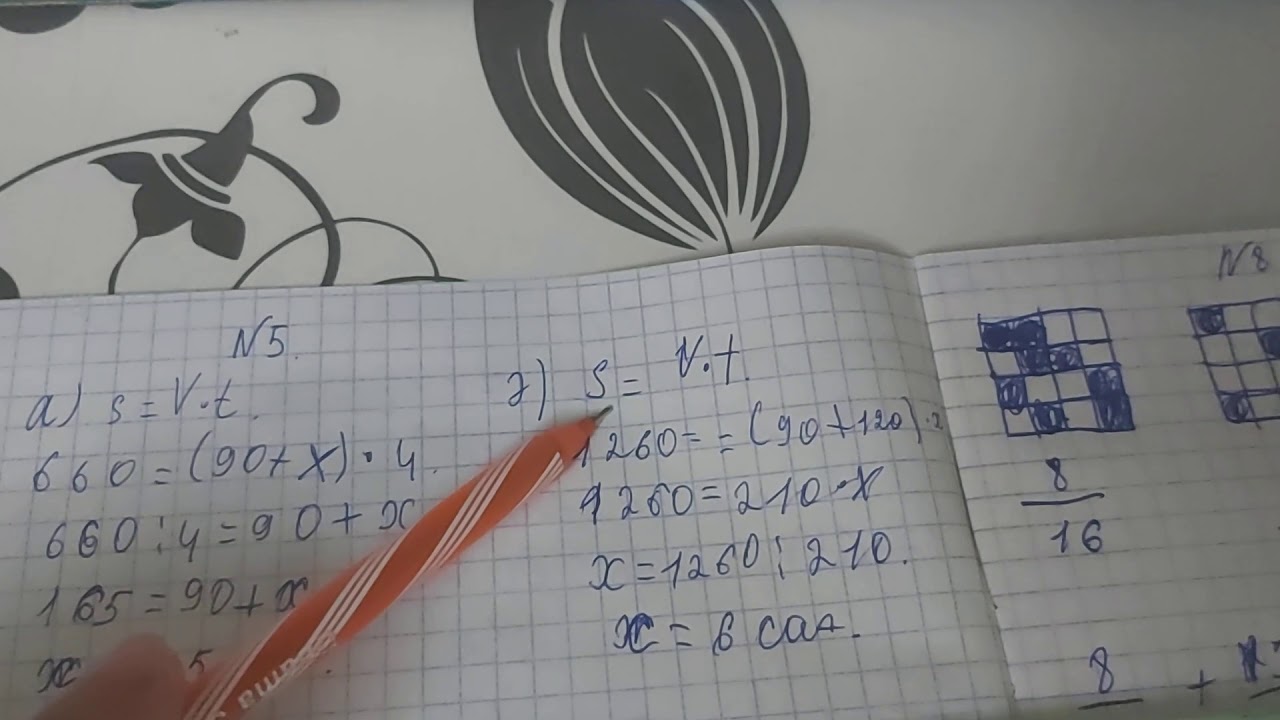 N5.
а) s = V·t.
660 = (90+x)·4.
660:4 = 90+x
165 = 90+x
x
5
ә) S = V·t.
1260 = = (90+120)·
1260 = 210·x
x = 1260:210.
x = 6 сағ.
N8
8
16
8
+